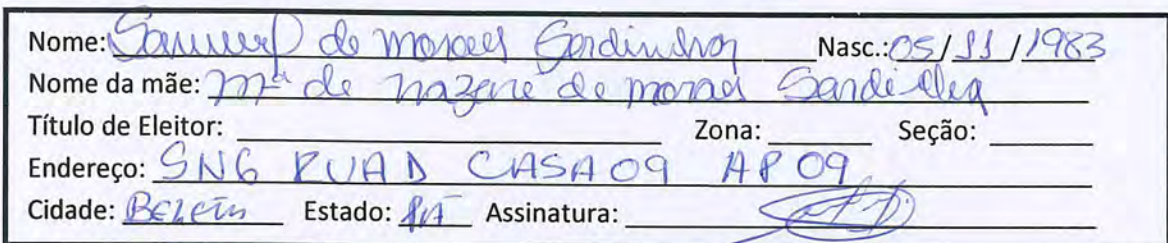 Nome: Samuel de moraes Sardinha Nasc.: 05/11/1983
Nome da mãe: Mª de nazare de moraes Sardinha
Título de Eleitor: Zona: Seção:
Endereço: SN6 RUA D CASA 09 AP 09
Cidade: BELEM Estado: PA Assinatura: